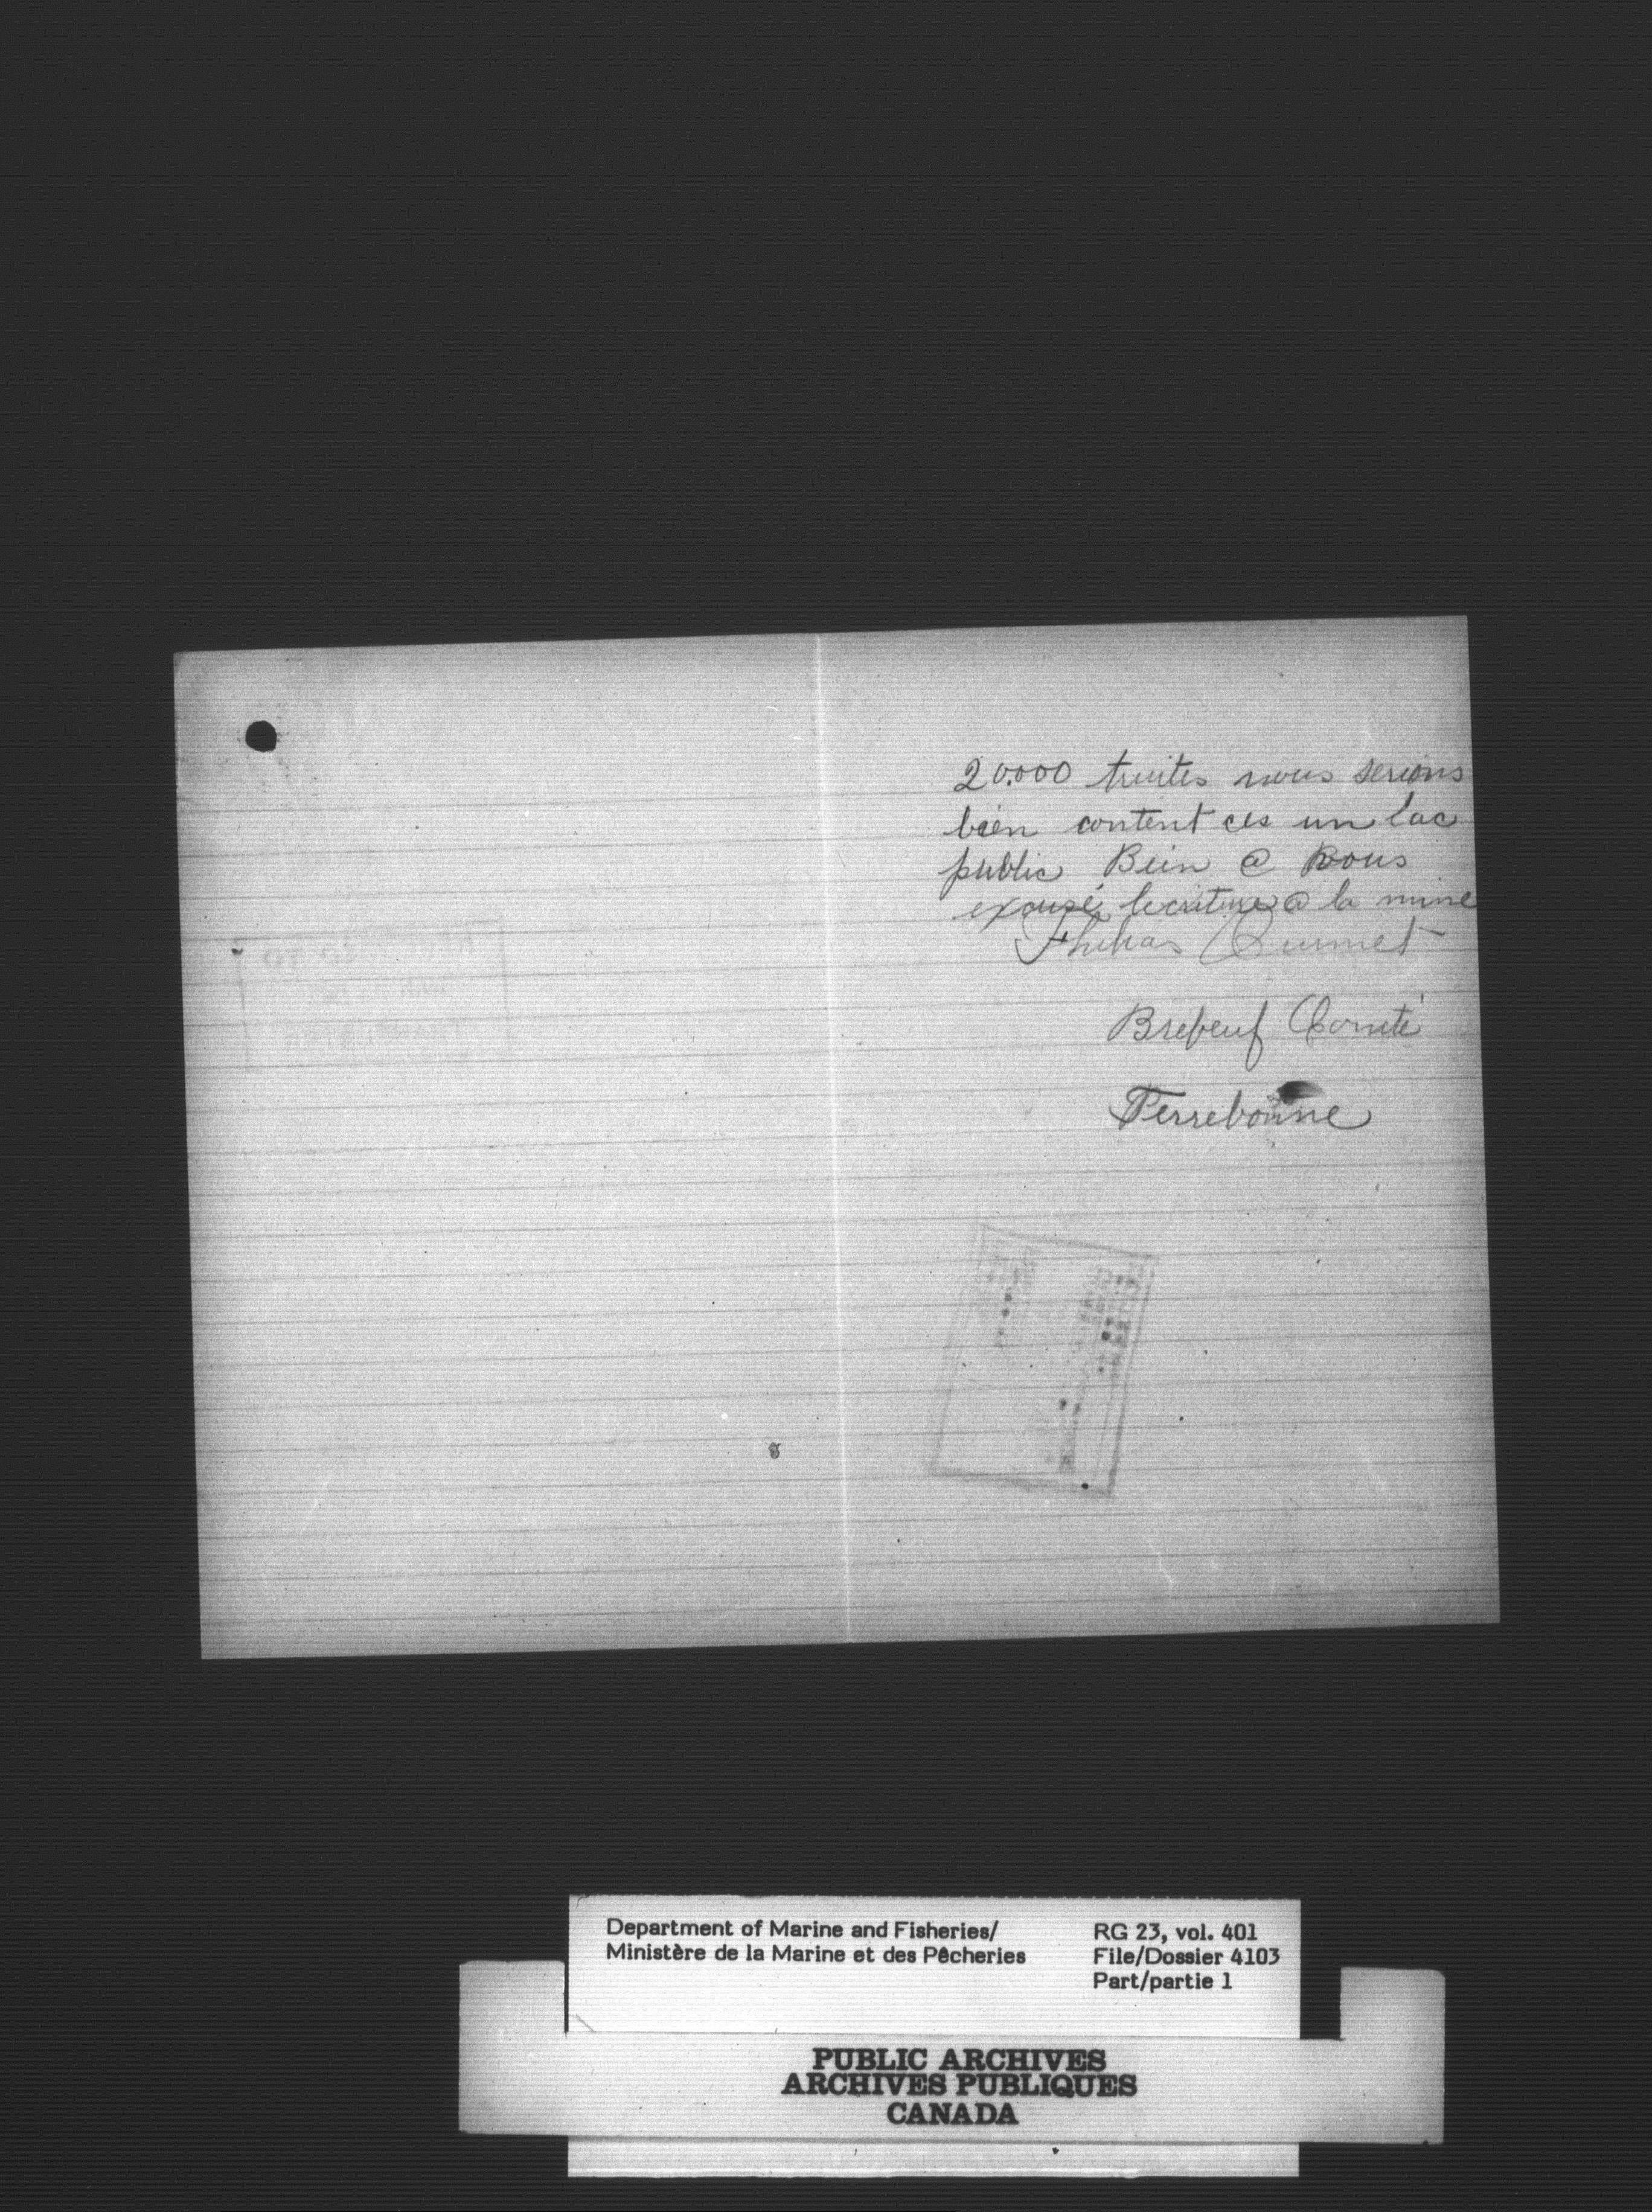 20.000 truites nous serions
bien content ces un lac
public Bien @ vous
excusé lecriture @ la mine
Ouimet
Brebeuf Comté
Terrebonne
Department of Marine and Fisheries/
Ministère de la Marine et des Pêcheries
RG 23, vol. 401
File/Dossier 4103
Part/partie 1
PUBLIC ARCHIVES
ARCHIVES PUBLIQUES
CANADA